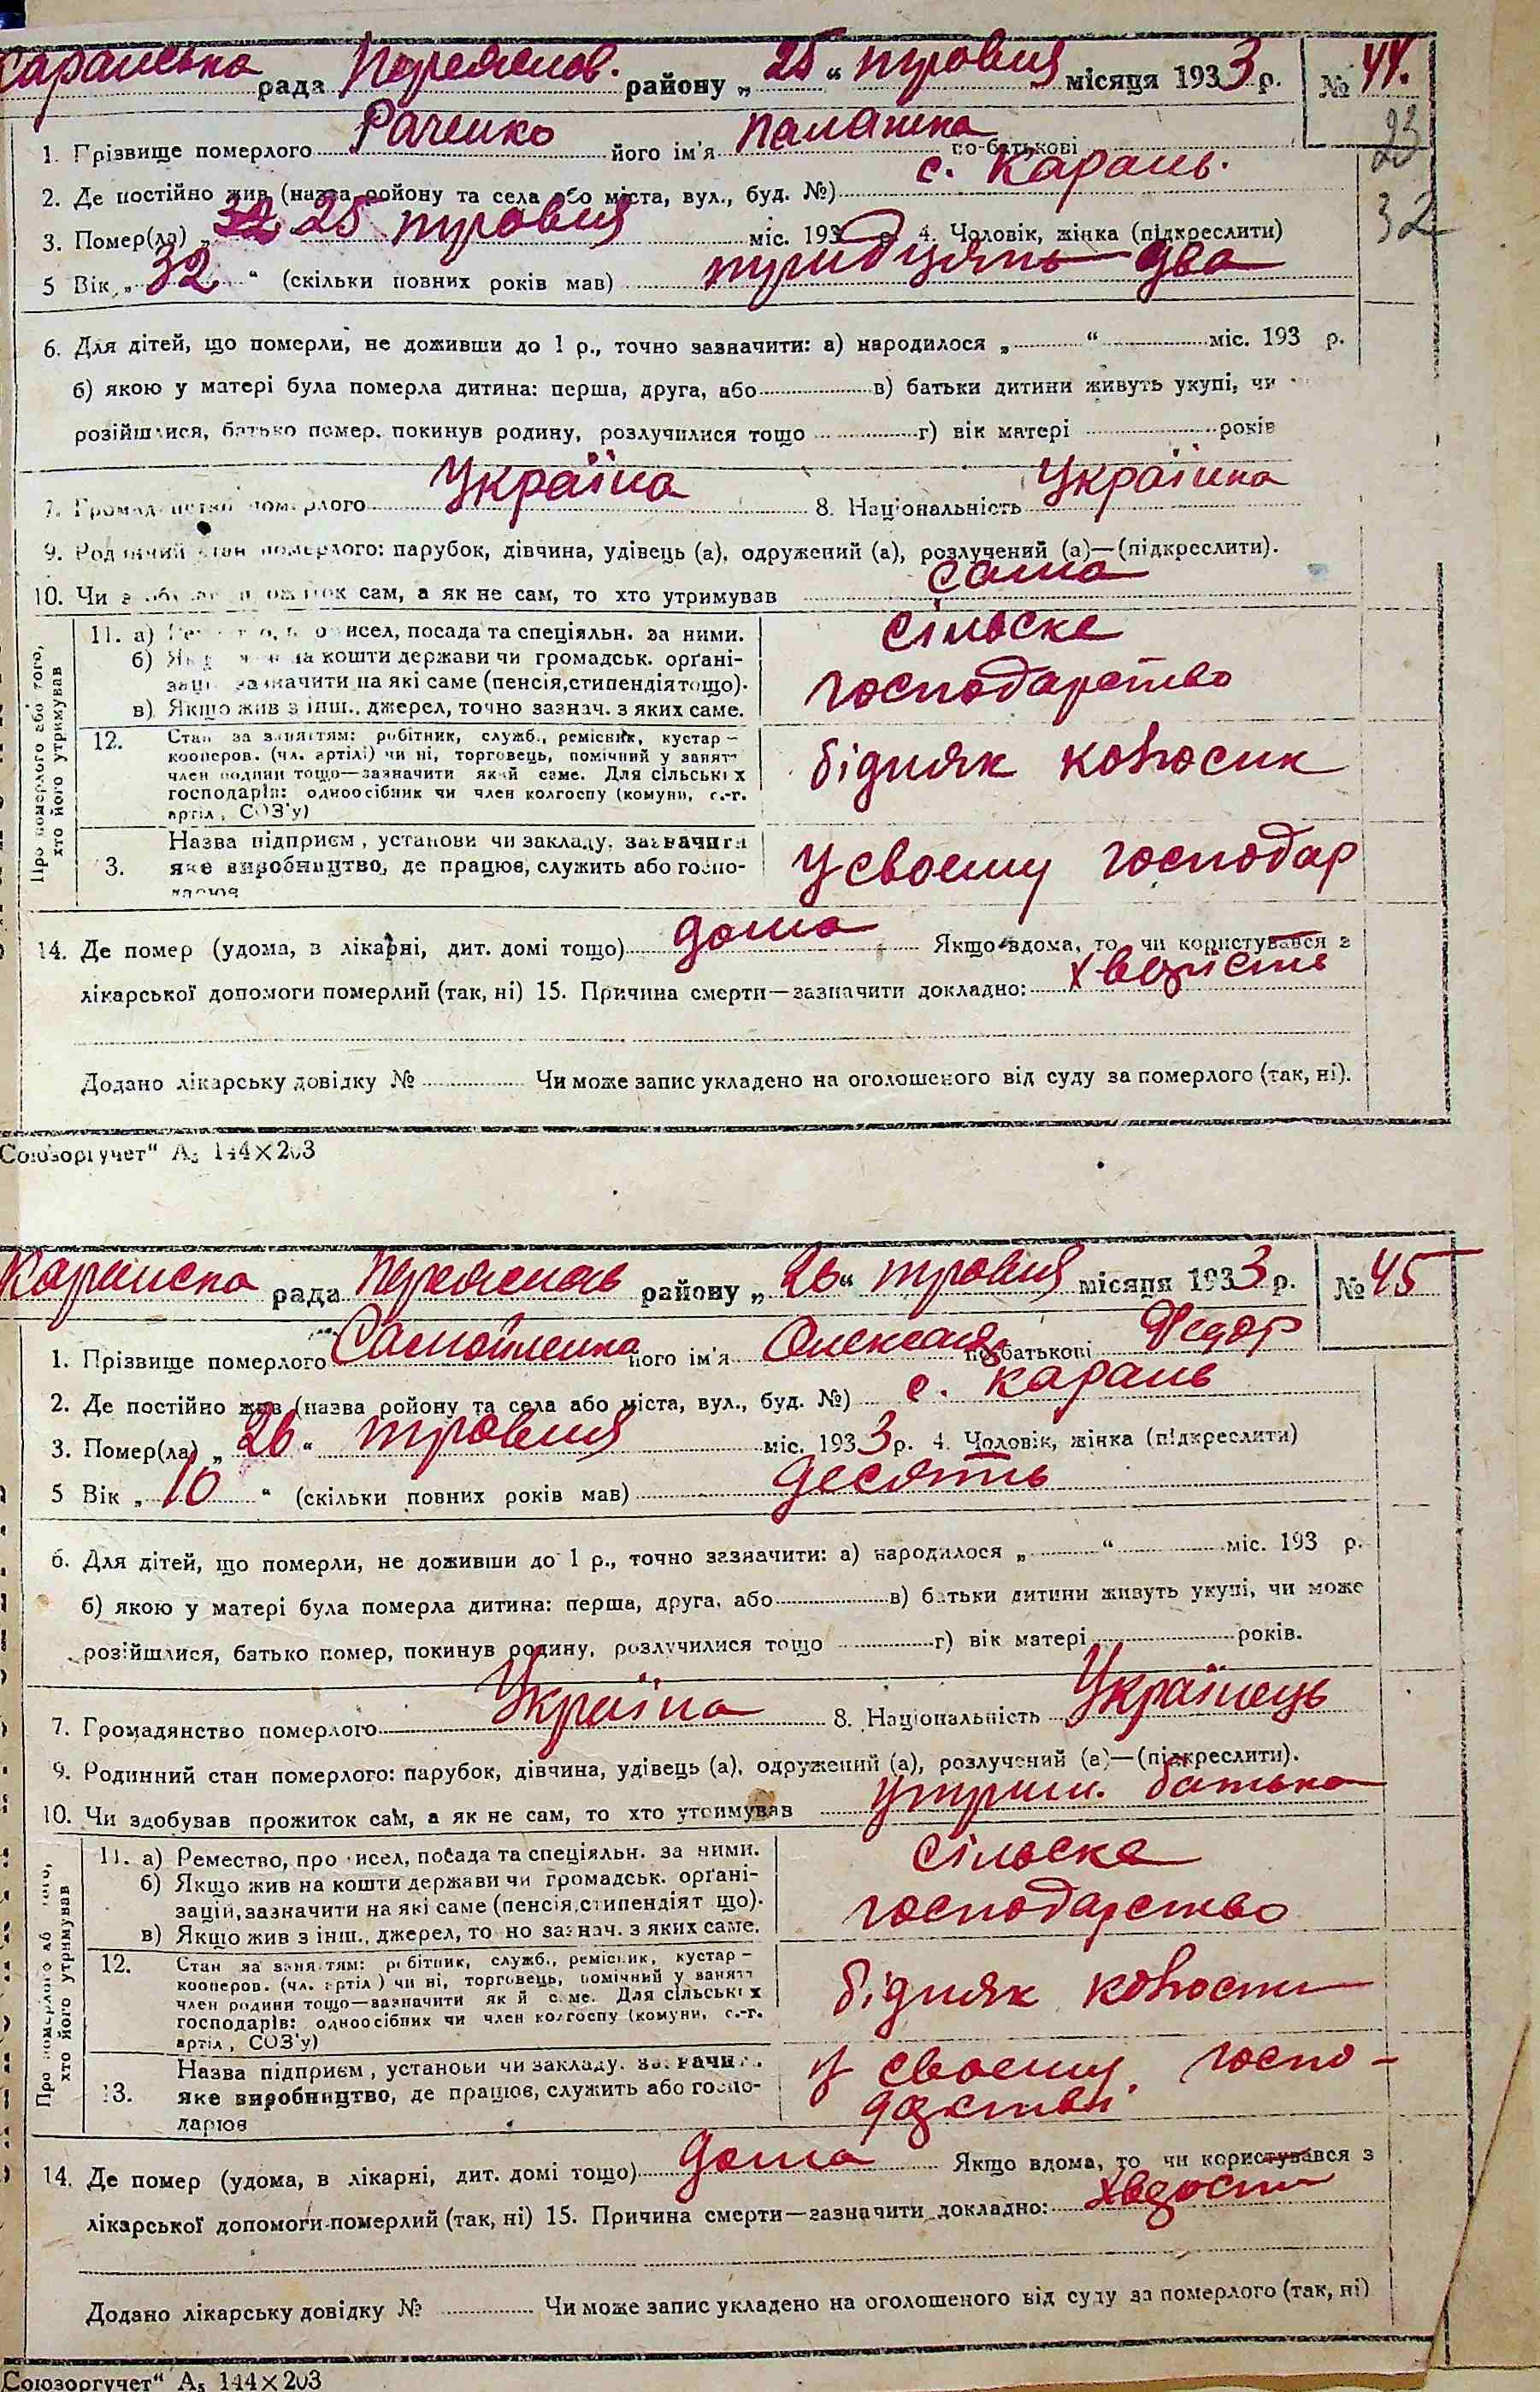 Каранська рада Переяслов. району „ 25 “ травня місяця 1933 р. № 44.
23
1. Прізвище померлого Раченко його ім'я Палажка по-батькові
2. Де постійно жив (назва ройону та села або міста, вул., буд. №) с. Карань.
32
3. Помер(ла) „ 25 травня міс. 193 р. 4. Чоловік, жінка (підкреслити)
5 Вік „ 32 “ (скільки повних років мав) тридцять два
6. Для дітей, що померли, не доживши до 1 р., точно зазначити: а) народилося „ “ міс. 193 р.
б) якою у матері була померла дитина: перша, друга, або в) батьки дитини живуть укупі, чи
розійшлися, батько помер, покинув родину, розлучилися тощо г) вік матері років
7. Громадянство померлого Україна 8. Національність Українка
9. Родинний стан померлого: парубок, дівчина, удівець (а), одружений (а), розлучений (а)—(підкреслити).
10. Чи здобував прожиток сам, а як не сам, то хто утримував сама
Про померлого або того, хто його утримував
11. а) Ремество, промисел, посада та спеціяльн. за ними. сільске
б) Якщо жив на кошти держави чи громадськ. орґані-
зацій зазначити на які саме (пенсія, стипендія тощо). господарство
в) Якщо жив з інш., джерел, точно зазнач. з яких саме.
12. Стан за заняттям: робітник, служб., ремісник, кустар —
кооперов. (чл. артілі) чи ні, торговець, помічний у занятт
член родини тощо—зазначити який саме. Для сільських бідняк
господарів: одноосібник чи член колгоспу (комуни, с.-г.
артіл, СОЗ'у)
Назва підприєм, установи чи закладу, зазначити
13. яке виробництво, де працює, служить або госпо- у своему господар
дарює
14. Де помер (удома, в лікарні, дит. домі тощо) дома Якщо вдома, то чи користувався з
лікарської допомоги померлий (так, ні) 15. Причина смерти—зазначити докладно:
Додано лікарську довідку № Чи може запис укладено на оголошеного від суду за померлого (так, ні).
Союзоргучет“ А5 144×203
Каранска рада Переяслав району „ 26 “ травня місяця 1933 р. № 45
1. Прізвище померлого Самойленко його ім'я Олексій по-батькові Федор
2. Де постійно жив (назва ройону та села або міста, вул., буд. №) с. Карань
3. Помер(ла) „ 26 “ травня міс. 1933 р. 4. Чоловік, жінка (підкреслити)
5 Вік „ 10 “ (скільки повних років мав) десять
6. Для дітей, що померли, не доживши до 1 р., точно зазначити: а) народилося „ “ міс. 193 р.
б) якою у матері була померла дитина: перша, друга, або в) батьки дитини живуть укупі, чи може
розійшлися, батько помер, покинув родину, розлучилися тощо г) вік матері років.
7. Громадянство померлого Україна 8. Національність Українець
9. Родинний стан померлого: парубок, дівчина, удівець (а), одружений (а), розлучений (а)—(підкреслити).
10. Чи здобував прожиток сам, а як не сам, то хто утримував утрим. батька
Про померлого або того, хто його утримував
11. а) Ремество, промисел, посада та спеціяльн. за ними. сільске
б) Якщо жив на кошти держави чи громадськ. орґані-
зацій, зазначити на які саме (пенсія, стипендія тощо). господарство
в) Якщо жив з інш., джерел, точно зазнач. з яких саме.
12. Стан за заняттям: робітник, служб., ремісник, кустар —
кооперов. (чл. артіл) чи ні, торговець, помічний у занятт
член родини тощо—зазначити який саме. Для сільських бідняк
господарів: одноосібник чи член колгоспу (комуни, с.-г.
артіл, СОЗ'у)
Назва підприєм, установи чи закладу, зазначит. у своему госпо-
13. яке виробництво, де працює, служить або госпо-
дарює
14. Де помер (удома, в лікарні, дит. домі тощо) дома Якщо вдома, то чи користувався з
лікарської допомоги померлий (так, ні) 15. Причина смерти—зазначити докладно:
Додано лікарську довідку № Чи може запис укладено на оголошеного від суду за померлого (так, ні)
Союзоргучет“ А5 144×203